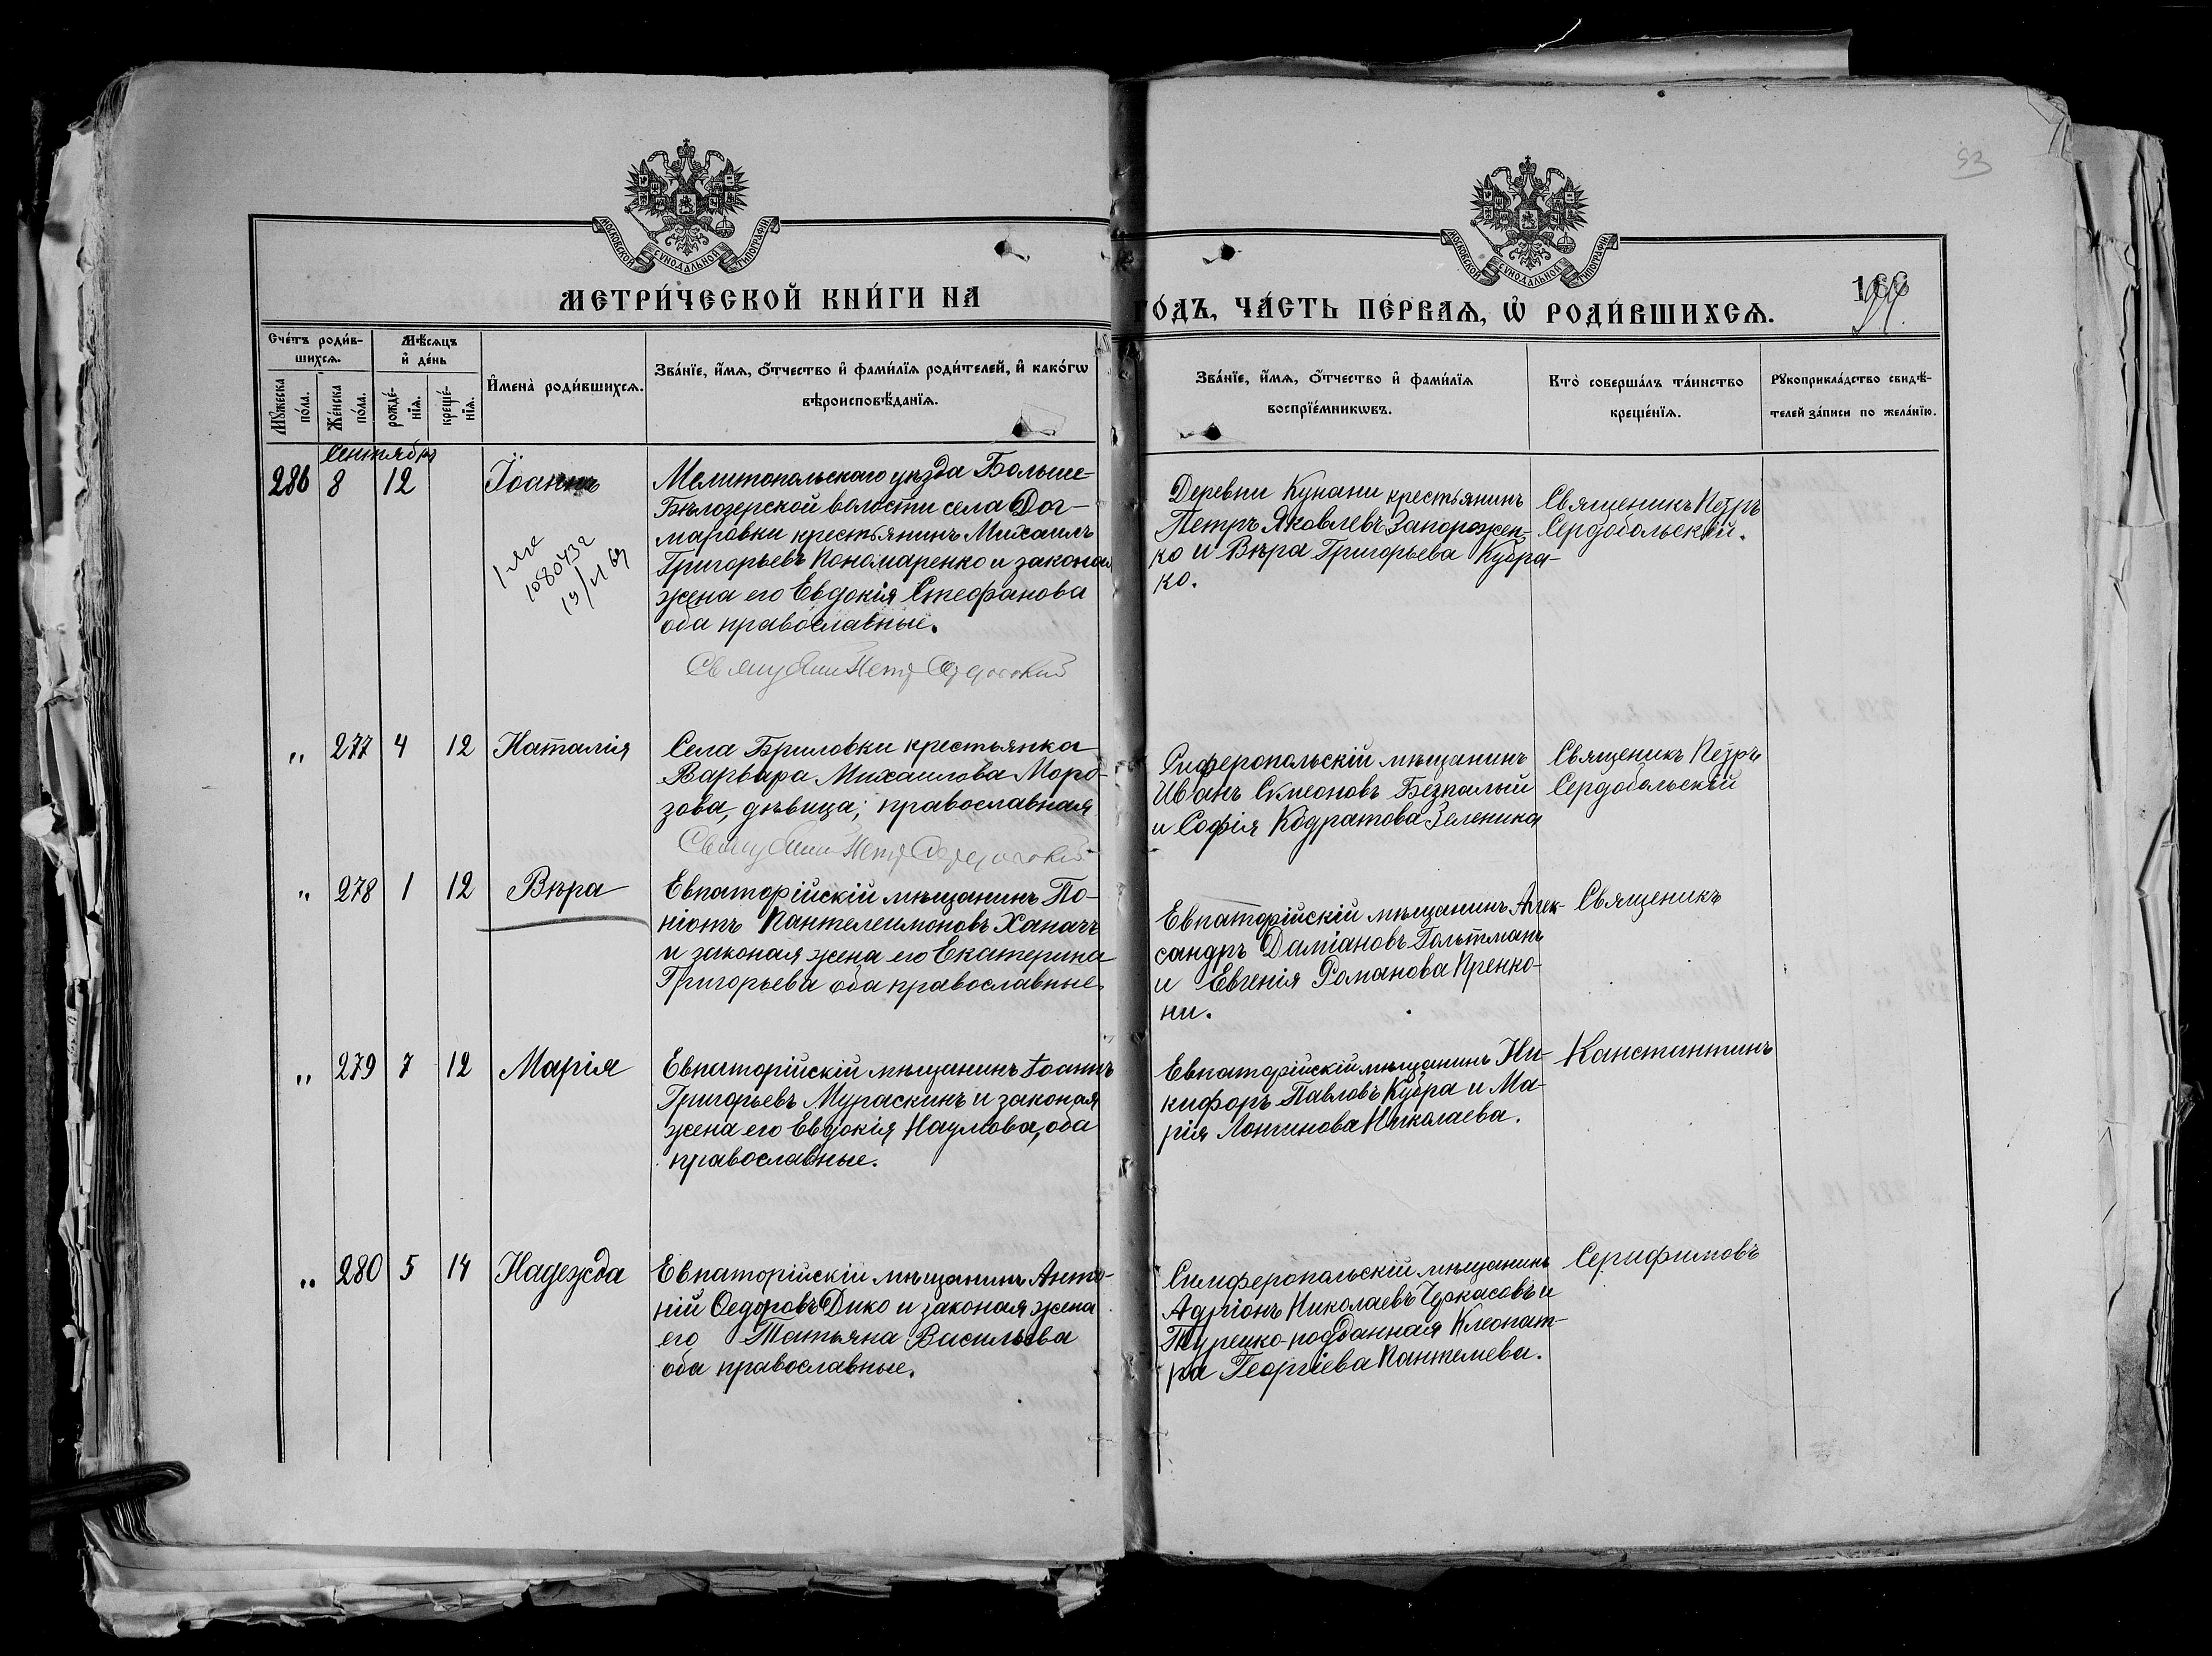 53
МОСКОВСКОЙ СУНОДАЛЬНОЙ ТИПОГРАФІИ.
МОСКОВСКОЙ СУНОДАЛЬНОЙ ТИПОГРАФІИ.
МЕТРИ́ЧЕСКОЙ КНИ́ГИ НА
ГО́ДЪ, ЧА́СТЬ ПЕ́РВАѦ, Ѡ҆ РОДИ́ВШИХСѦ.
Сче́тъ роди́в-
шихсѧ.
Мѣ́сѧцъ
и҆ де́нь
Мꙋ́жеска
по́ла.
Же́нска
по́ла.
рожде́-
нїѧ.
креще́-
нїѧ.
И҆мена̀ роди́вшихсѧ.
Зва́нїе, и҆́мѧ, ѻ҆́тчество и҆ фами́лїѧ роди́телей, и҆ како́гѡ
вѣроисповѣ́данїѧ.
Зва́нїе, и҆́мѧ, ѻ҆́тчество и҆ фами́лїѧ
воспрїе́мникѡвъ.
Кто̀ соверша́лъ та́инство
креще́нїѧ.
Рꙋкоприкла́дство свидѣ́-
телей за́писи по жела́нїю.
Сентябрь
286 8 12 Іоаннъ
Мелитопольскаго уѣзда Больше-
Бѣлозерской волости села Дог-
маровки крестьянинъ Михаилъ
Григорьевъ Пономаренко и законая
жена его Евдокія Стефанова
оба православные.
Деревни Кунани крестьянинъ
Петръ Яковлевъ Запорожен-
ко и Вѣра Григорьева Кубра-
ко.
Священикъ Петръ
Сердобольскій.
" 277 4 12 Наталія
Села Бриловки крестьянка
Варвара Михаилова Моро-
зова, дѣвица; православная
Симферопольскій мѣщанинъ
Иванъ Симеоновъ Безпалый
и Софія Кодратова Зеленина
Священикъ Петръ
Сердобольскій
" 278 1 12 Вѣра
Евпаторійскій мѣщанинъ По-
ніотъ Пантелеимоновъ Ханачъ
и законая жена его Екатерина
Григорьева оба православные.
Евпаторійскій мѣщанинъ Алек-
сандръ Даміановъ Гольтманъ
и Евгенія Романова Пренко-
ни.
Священикъ
" 279 7 12 Марія
Евпаторійскій мѣщанинъ Іоаннъ
Григорьевъ Мураскинъ и законая
жена его Евдокія Наумова, оба
православные.
Евпаторійскій мѣщанинъ Ни-
кифоръ Павловъ Кубра и Ма-
рія Лонгинова Николаева.
Канстантинъ
" 280 5 14 Надежда
Евпаторійскій мѣщанинъ Анто-
ній Ѳедоровъ Дико и законая жена
его Татьяна Васильева
оба православные.
Симферопольскій мѣщанинъ
Адріонъ Николаевъ Черкасовъ и
Турецко-подданная Клеопат-
ра Георгіева Пантелева.
Серифимовъ